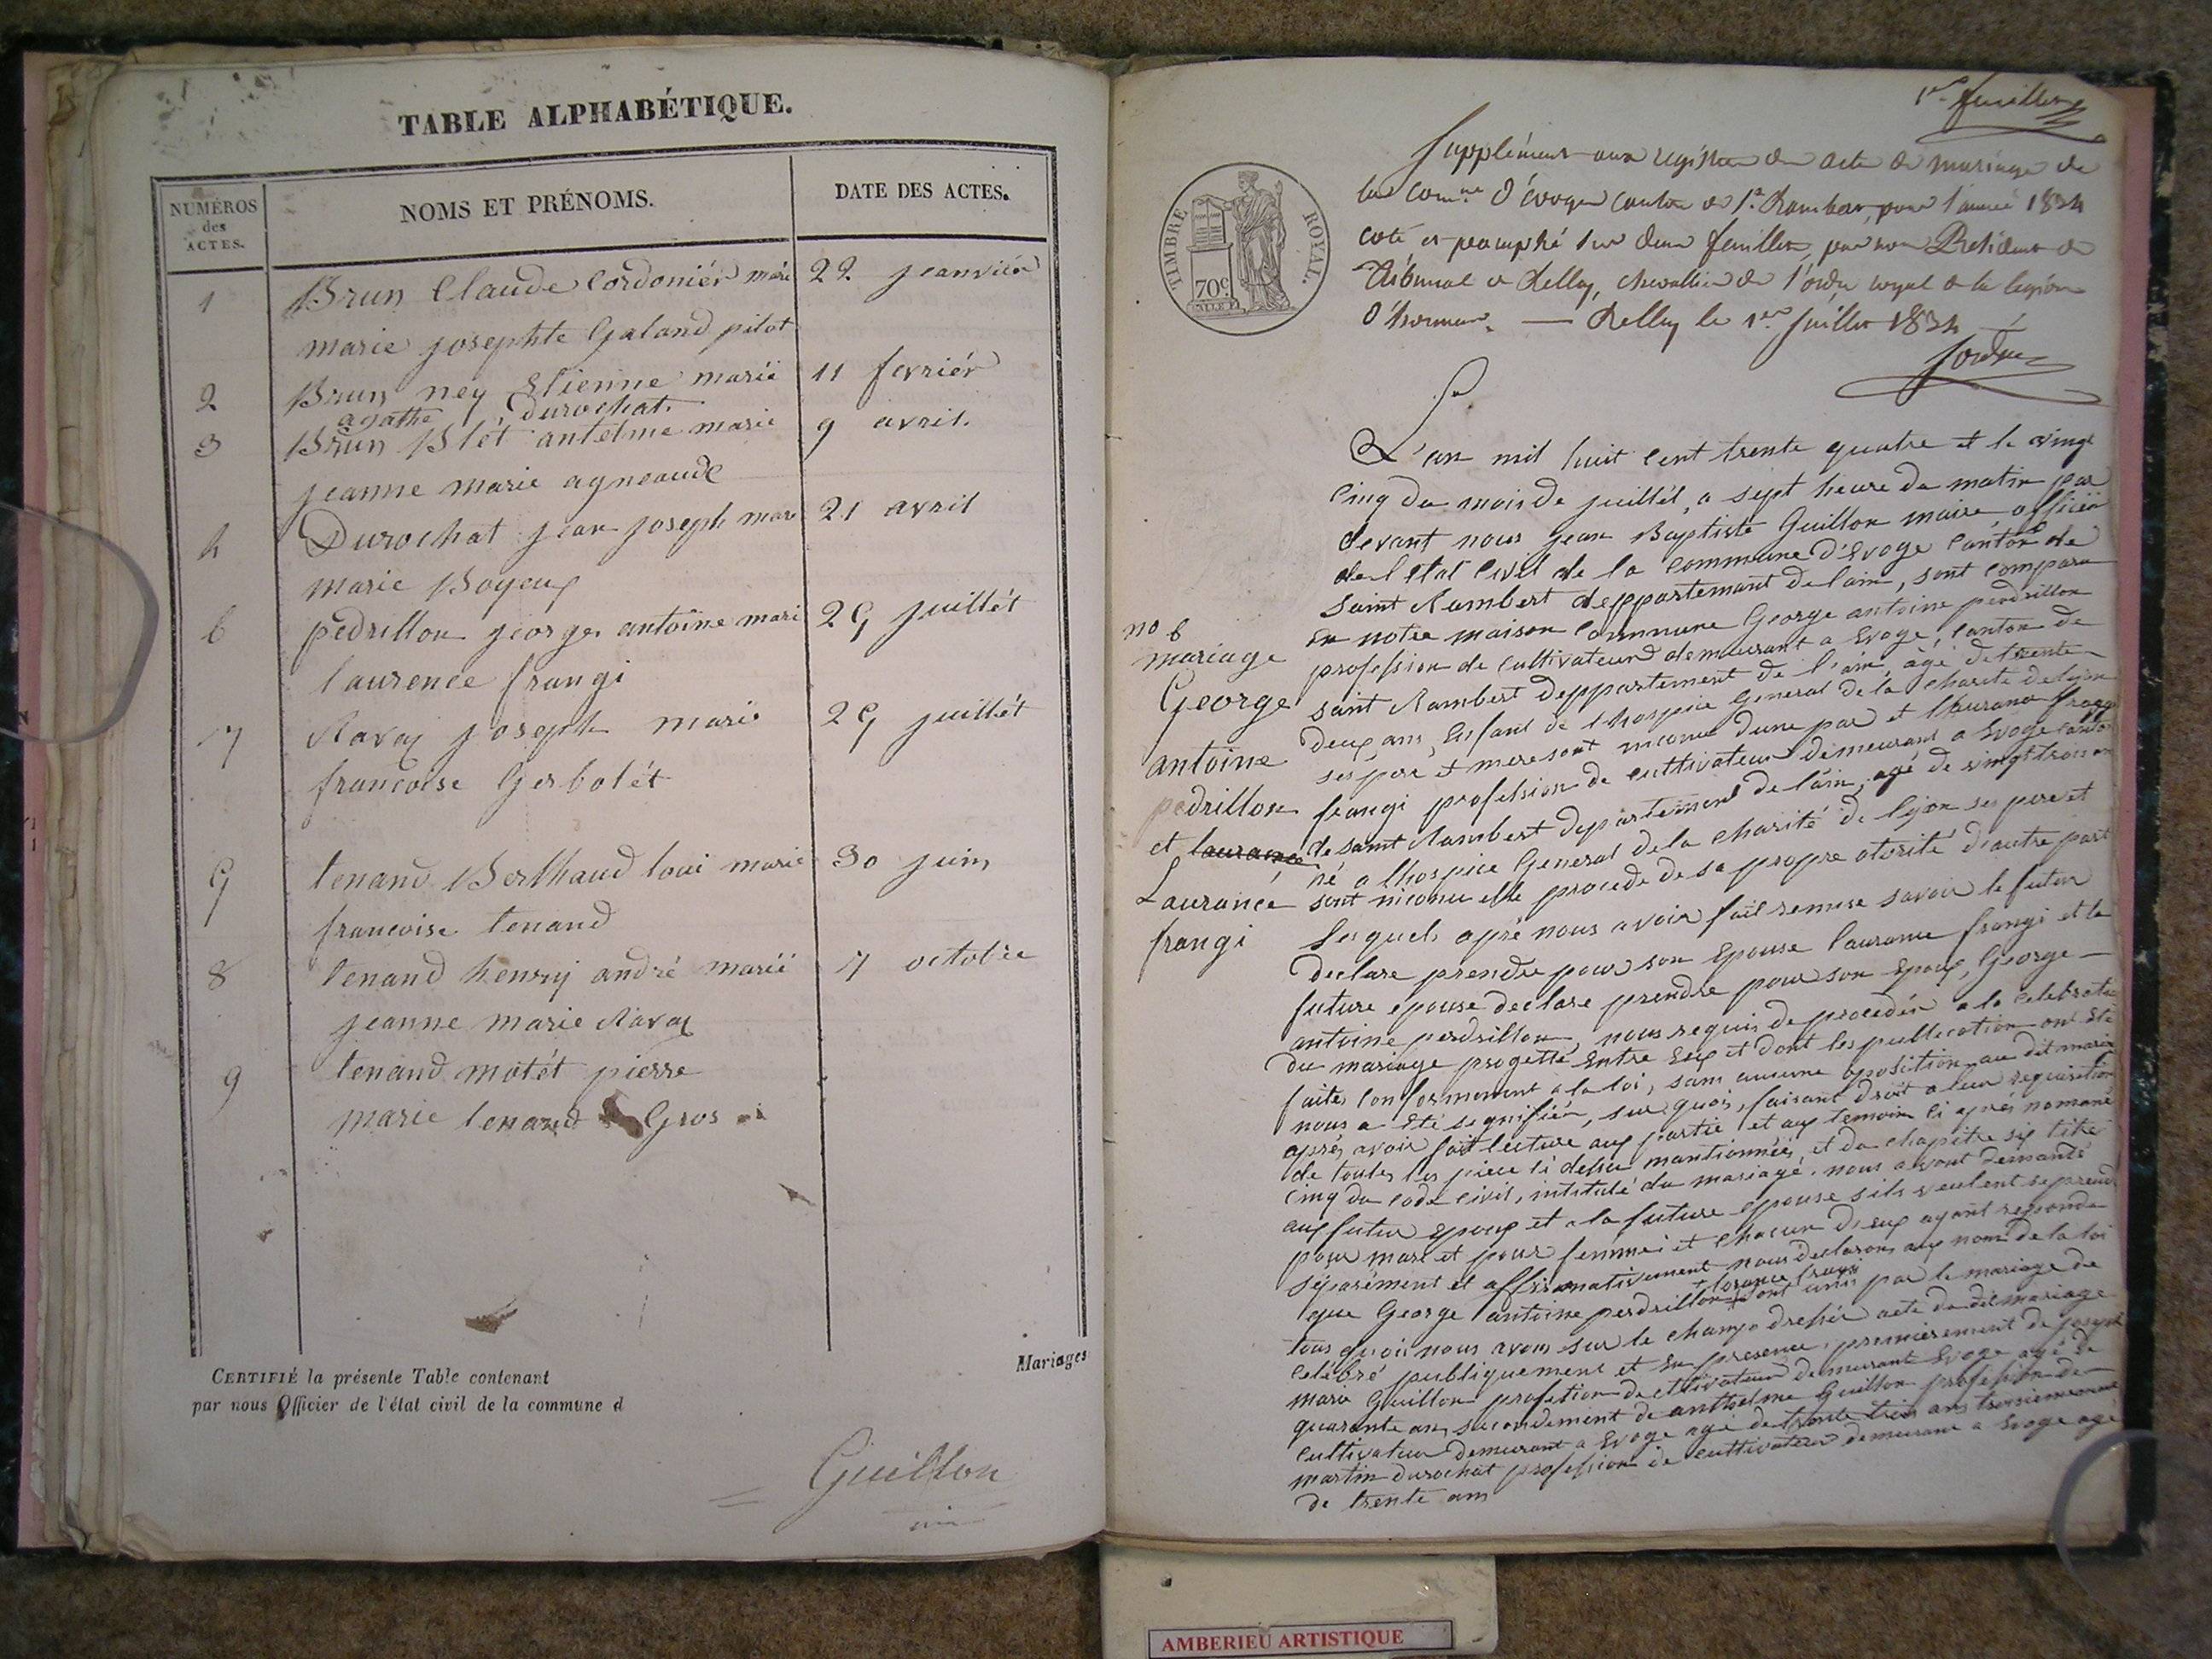 TABLE ALPHABÉTIQUE.
NUMÉROS des ACTES.
NOMS ET PRÉNOMS.
DATE DES ACTES.
1 Brun Claude Cordoniér marie 22 janviér
marie josephte Galand pilot
2 Brun ney Etienne mariè 11 fevriér
agathe durochat
3 Brun Blét antelme marié 9 avril.
jeanne marie agneaud
4 Durochat jean joseph mari 21 avril
marie
6 pedrillon george antoine mari 25 juillét
laurence frangi
7 Ravaz joseph marie 25 juillét
francoise Gerbolét
5 tenand Berthaud loui marie 30 juin
francoise tenand
8 tenand henry andré mariè 7 octobre
jeanne marie Ravaz
9 tenand motét pierre
marie tenand Gros
CERTIFIÉ la présente Table contenant
par nous Officier de l'état civil de la commune d
Mariages
Guillon
1er feuillet
Supplément aux registre de acte de mariage de
la Comne d'évoges Canton de St Rambert, pour l'année 1834
coté et paraphé sur deux feuillets, par nous Président du
Tribunal de Belley, chevallier de l'ordre royal de la légion
d'honneur. — Belley le 1er Juillet 1834
TIMBRE ROYAL.
70c
L'an mil huit cent trente quatre et le vingt
cinq du mois de juillét, a sept heure du matin par
devant nous jean Baptiste Guillon maire officiér
de l etat civil de la commune d'Evoge canton de
saint Rambert deppartemant de lain, sont comparu
en notre maison commune George antoine perdrillon
profession de cultivateur demeurant a Evoge, canton de
saint Rambert deppartement de l'ain, agé de trente
deux ans, enfant de l hospice General de la charité de lyon
ses peré et mere sont inconue dune par et
frangi profession de cultivateur demeurant a Evoge canton
de saint Rambert departement de lain, agé de vingt trois an
né a lhospice General de la charité de lyon ses pere et
sont inconue elle procede de sa propre otorité d'autre part
Lesquels apré nous avoir fait remise savoir le futur
declare prendre pour son Epouse laurance frangi et la
future epouse declare prendre pour son Epoux, George
antoine perdrillon, nous requis de procedér a la celebration
du mariage progetté entre Eux et dont les publication on été
faites conformement a la loi, sans aucune oposition au dit mariage
nous a été signifiér, sur quoi, faisant droit a leur requisition
aprés avoir fait lecture aux partie et aux temoin ci aprés nommé
de toutes les piece ci dessu mantionnéés, et du chapitre six titre
cinq du code civil, intitulé du mariage. nous avont demandé
aux futur epoux et a la future epouse sils veulent se prendre
pour mari et pour femme: et chacun deux ayant repondu
séparément et affirmativement nous declarons aux nom de la loi
+ lorance frangi
que George antoine perdrillon + sont unis par le mariage de
tous quoi nous avons sur le champ dressér acte du dit mariage
celébré publiquement et en presence, premièrement de joseph
marie Guillon profetion de cultivateur demeurant Evoge agé de
quarante ans, secondement de anthelme Guillon profession de
cultivateur demeurant a Evoge agé de trente trois ans troisiemement
martin durochat profession de cultivateur demeurant a Evoge agé
de trente ans
no 6
mariage
George
antoine
pedrillon
et laurance
Laurancé
frangi
AMBERIEU ARTISTIQUE